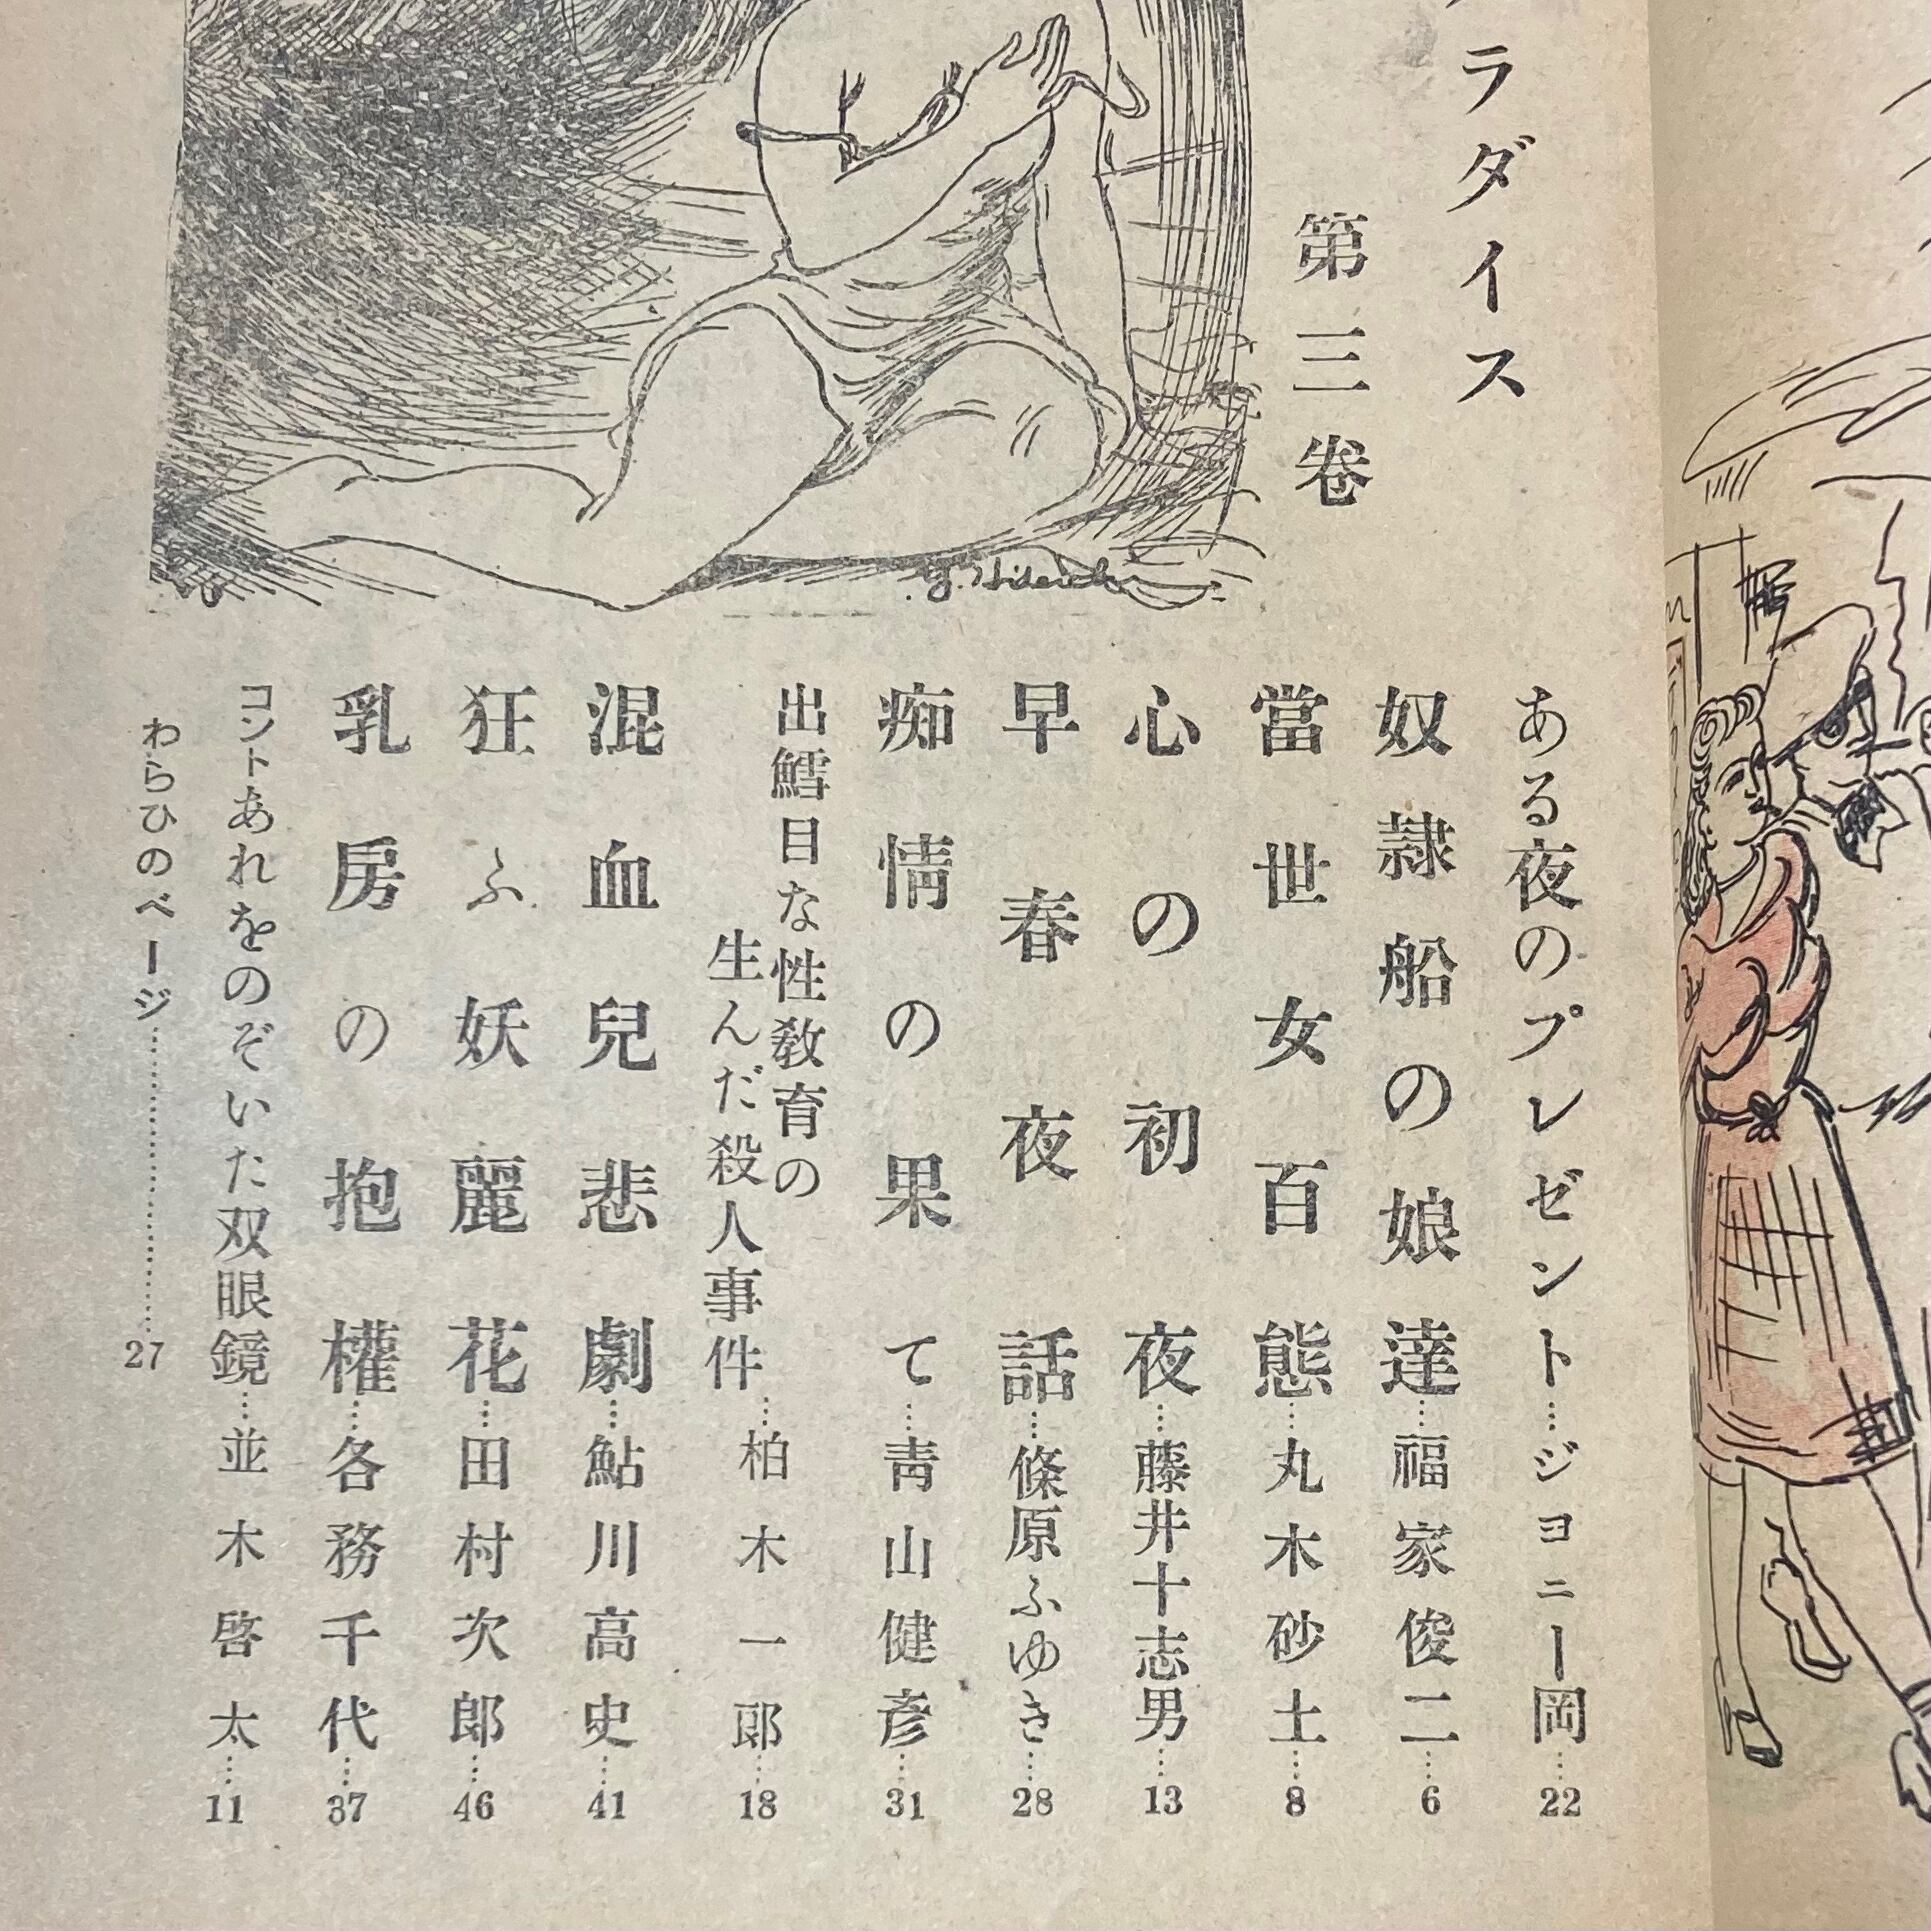 ラダイス
第三卷
ある夜のプレゼント…ジョニー岡…22
奴隷船の娘達…福家俊二…6
當世女百態…丸木砂土…8
心の初夜…藤井十志男…13
早春夜話…條原ふゆき…28
痴情の果て…靑山健彥…31
出鱈目な性敎育の
生んだ殺人事件…柏木一郎…18
混血兒悲劇…鮎川高史…41
狂ふ妖麗花…田村次郎…46
乳房の抱擁…各務千代…37
コントあれをのぞいた双眼鏡…並木啓太…11
わらひのページ…27